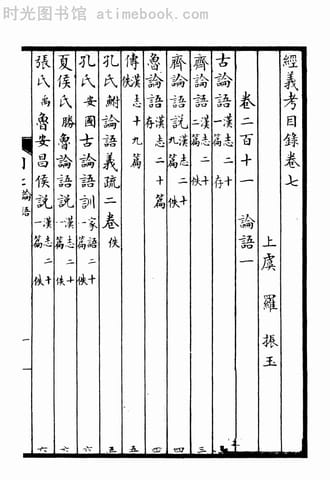 时光图书馆 - atimebook.com
經義考目錄卷七
上虞 羅 振玉
卷二百十一 論語一
古論語漢志二十一篇 存 一
齊論語漢志二十二篇 佚 三
齊論語說漢志二十九篇 佚 四
魯論語漢志二十篇 存 四
傳漢志十九篇 佚 五
孔氏鮒論語義疏二卷 佚 五
孔氏安國古論語訓家語二十一篇 佚 六
夏侯氏勝魯論語說漢志二十一篇 佚 六
張氏禹魯安昌侯說漢志二十一篇 佚 六
論語
一